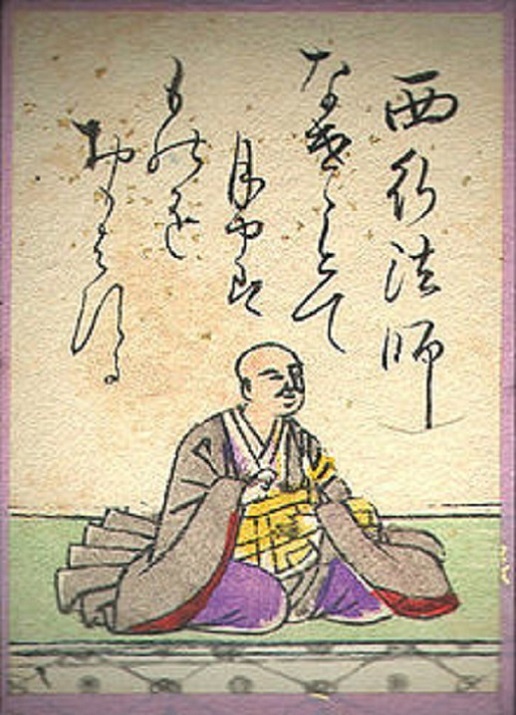 西行法師
なけゝとて
月やは
ものを
おもはする